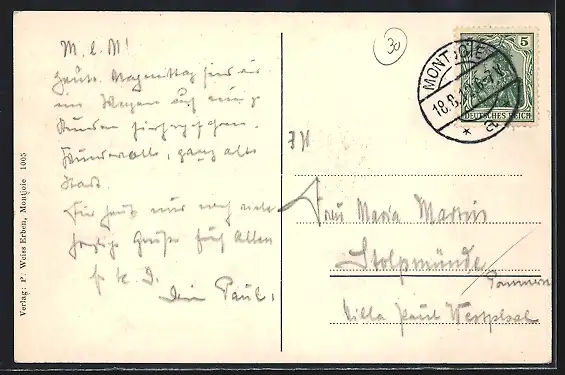 M. l. M!
Heute Nachmittag sind wir
im Wagen auf einige
Stunden hierhergefahren.
Wundervolle, ganz alte
Stadt.
Für heute nur noch viele
herzliche Grüße Euch Allen
Dein Paul.
Verlag: P. Weiss Erben, Montjoie 1005
30
MONTJOIE
18.8.
a
5
DEUTSCHES REICH
Frau Maria Martin
Stolpmünde
Pommern
Villa Paul Westphal